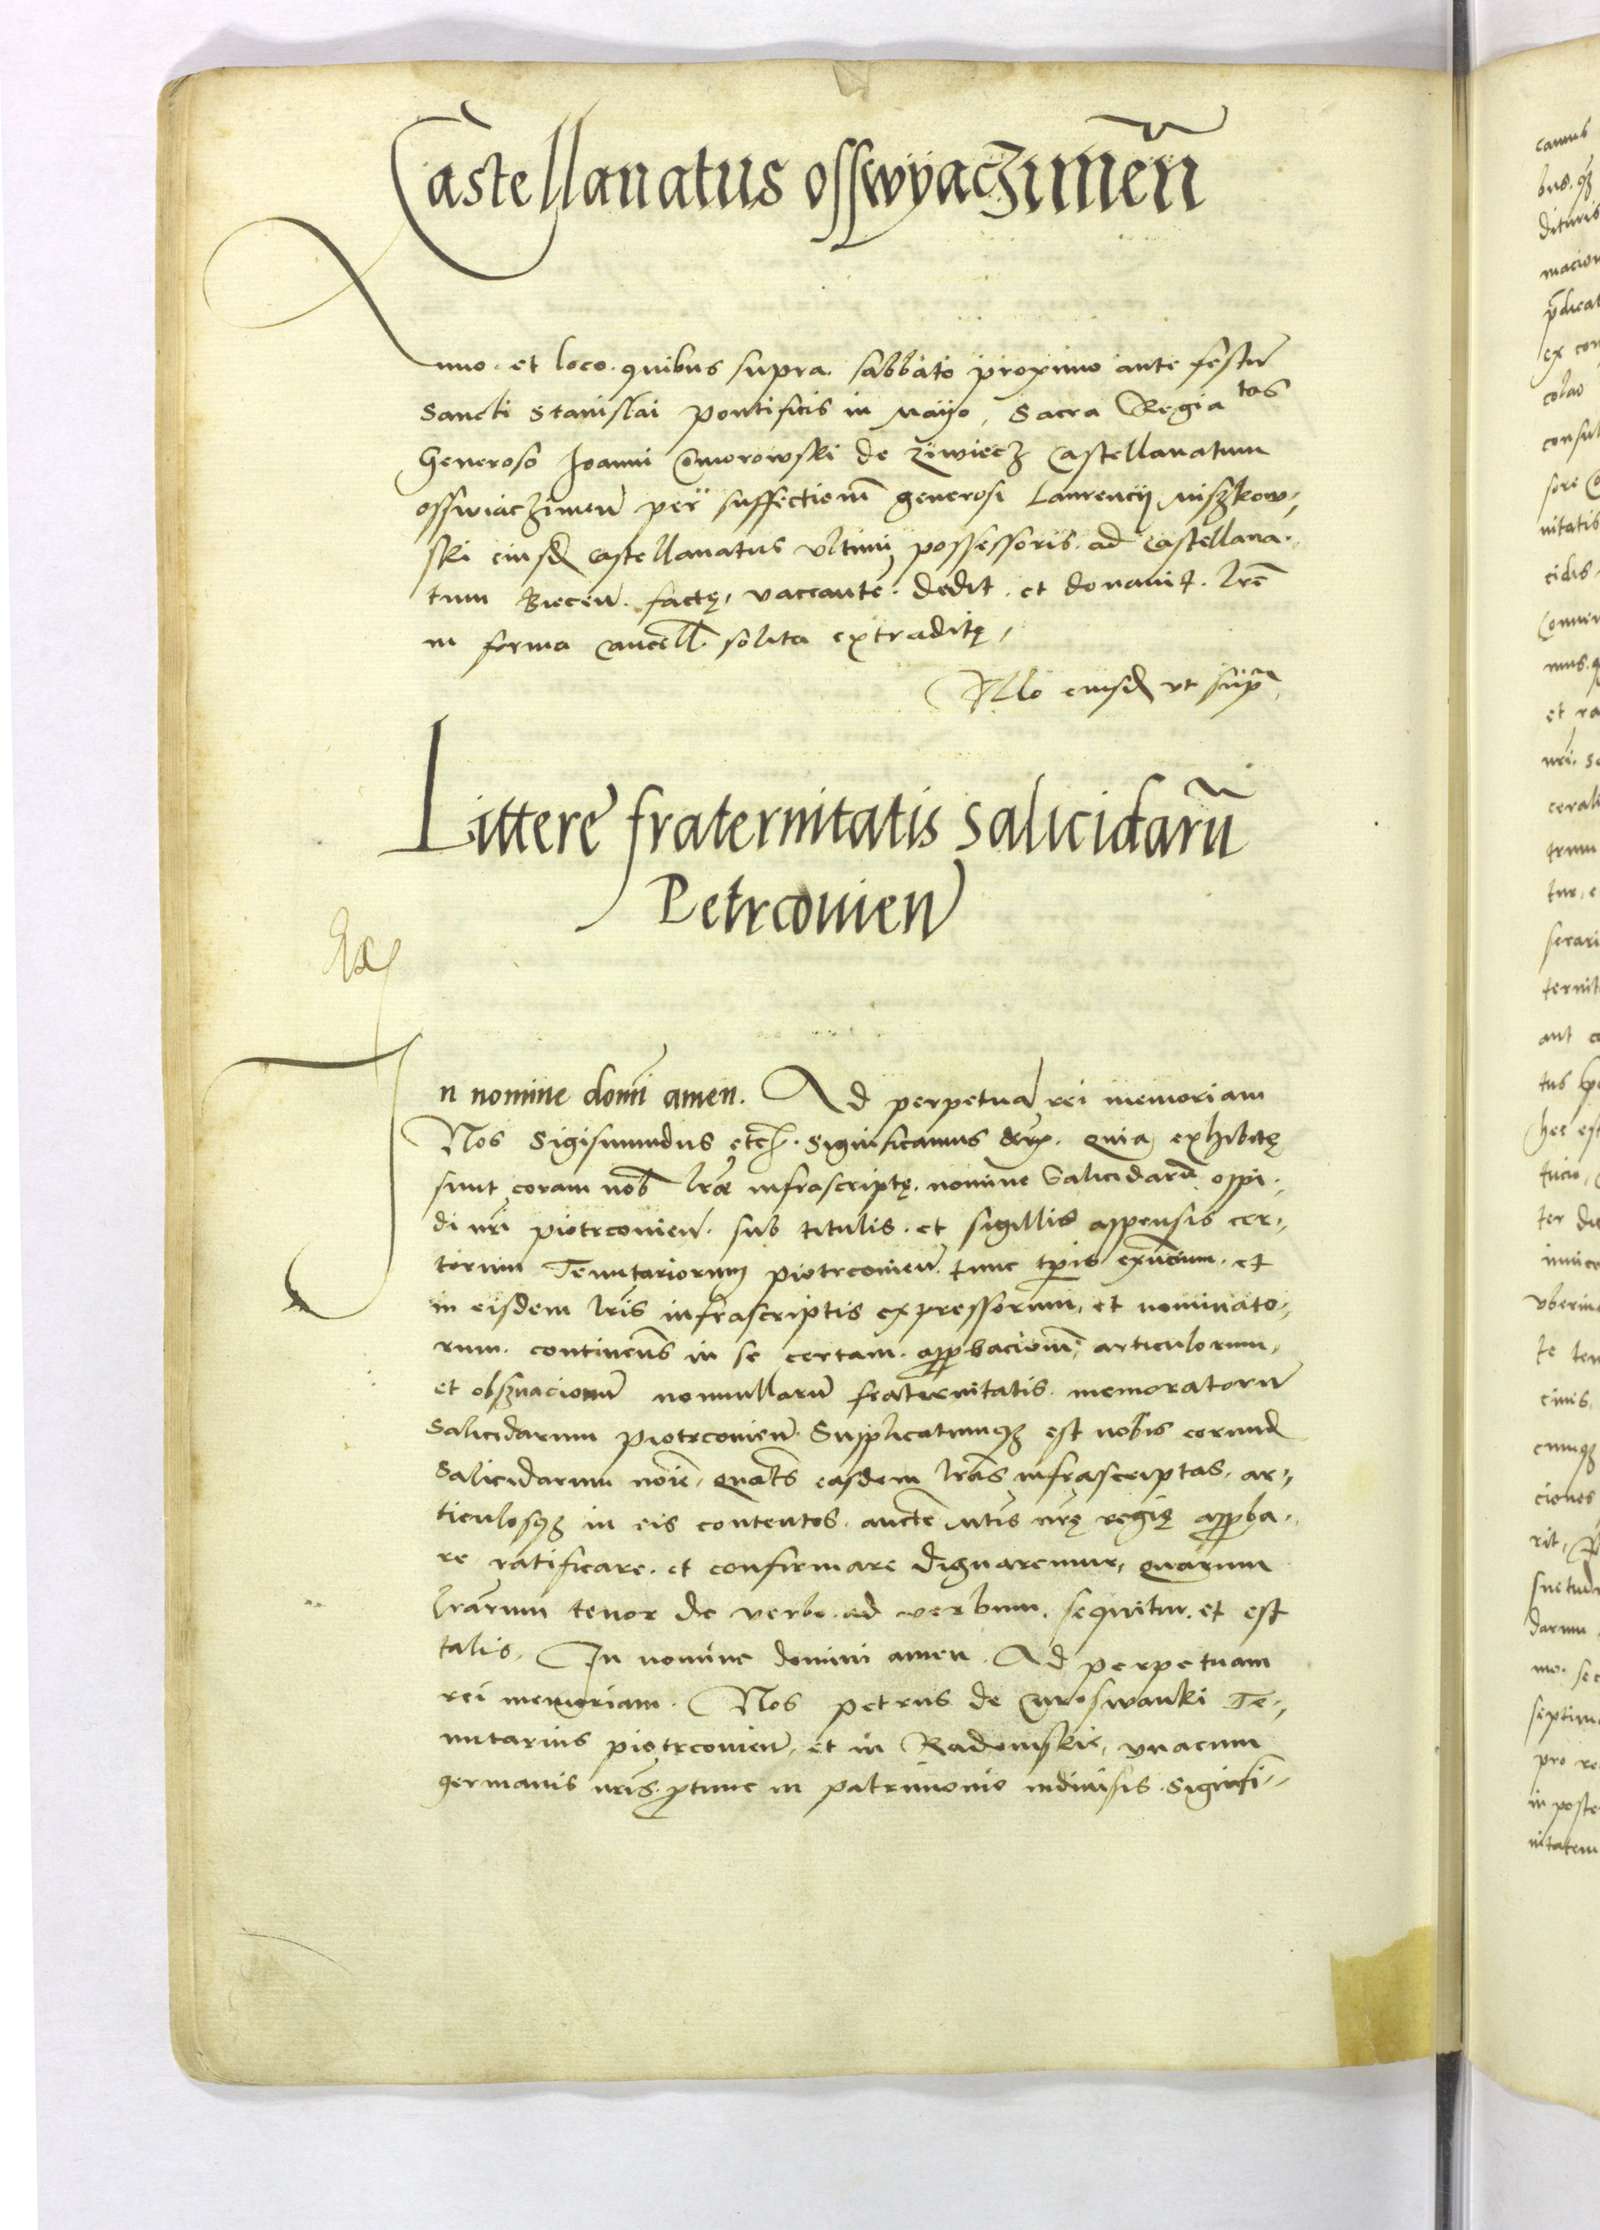 Castellanatus osswyaczimen̄
Anno et loco quibus supra sabbato proximo ante festū
Sancti Stanislai pontificis in Mayo, Sacra Regia tas
Generoso Joanni Comorowski de Ziwiecz Castellanatum
osswiaczimen̄ per suffectionē generosi Laurencij Misʒkow-
ski eiusd Castellanatus vltimi possessoris ad Castellana-
tum Biecen̄ factę, vaccantē dedit et donauit. lrē
in forma Cancell̄ solita extraditę,
Rllo eiusd vt supra
Littere fraternitatis Salicidarū
Petrcouien̄
In nomine domī amen. Ad perpetuā rei memoriam
Nos Sigismundus etc. Significamus Quia exhibitę
sunt coram nob lrae infrascriptę nomine Salicidarū oppi-
di nri piotrcouien̄ sub titulis et sigillis appensis cer-
torum Tenutariorum piotrcouien̄ tunc tp̄is et
in eisdem lris infrascriptis expressorum, et nominato-
rum. continens in se certam approbacionē, articulorum,
et obsʒuacionū nonnullarū fraternitatis memoratorū
Salicidarum piotrcouien̄ Supplicatumqʒ est nobis eorund
Salicidarum noīe, quats easdem lras infrascriptas, ar-
ticulosqʒ in eis contentos auctē Mtis nrę regię approba-
re ratificare et confirmare dignaremur, quarum
lrarum tenor de verbo ad verbum sequitur et est
talis, In nomine domini amen. Ad perpetuam
rei memoriam. Nos petrus de Cvroswanki Te-
nutarius piotrcouien̄, et in Radomskie, vnacum
germanis nris ptunc in patrimonio indiuisis Signifi-